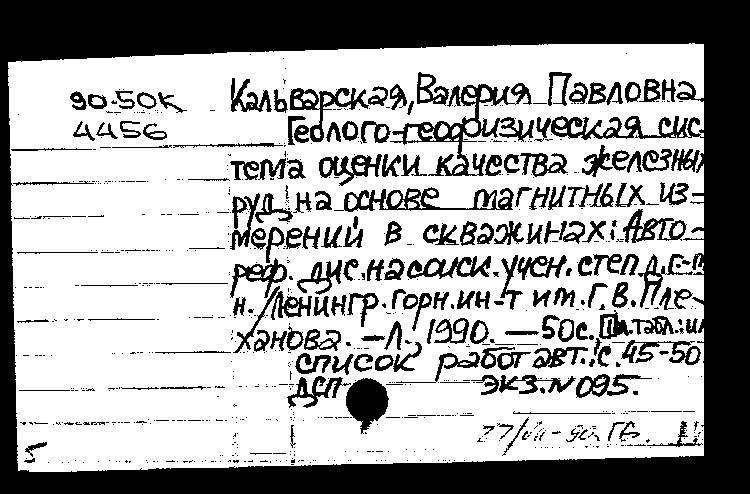 90-50К Кальварская, Валерия Павловна.
4456 Геолого-геофизическая сис-
тема оценки качества железны
руд на основе магнитных из-
мерений в скважинах: Авто-
реф. дис. на соиск. учен. степ. д. г.-м
н. / Ленингр. горн. ин-т им. Г. В. Пле-
ханова. — Л., 1990. — 50с., [1]л. табл.: ил
список работ авт.: с. 45-50
ДСП ЭКЗ. N 095.
27/VII-90. ГБ.
5